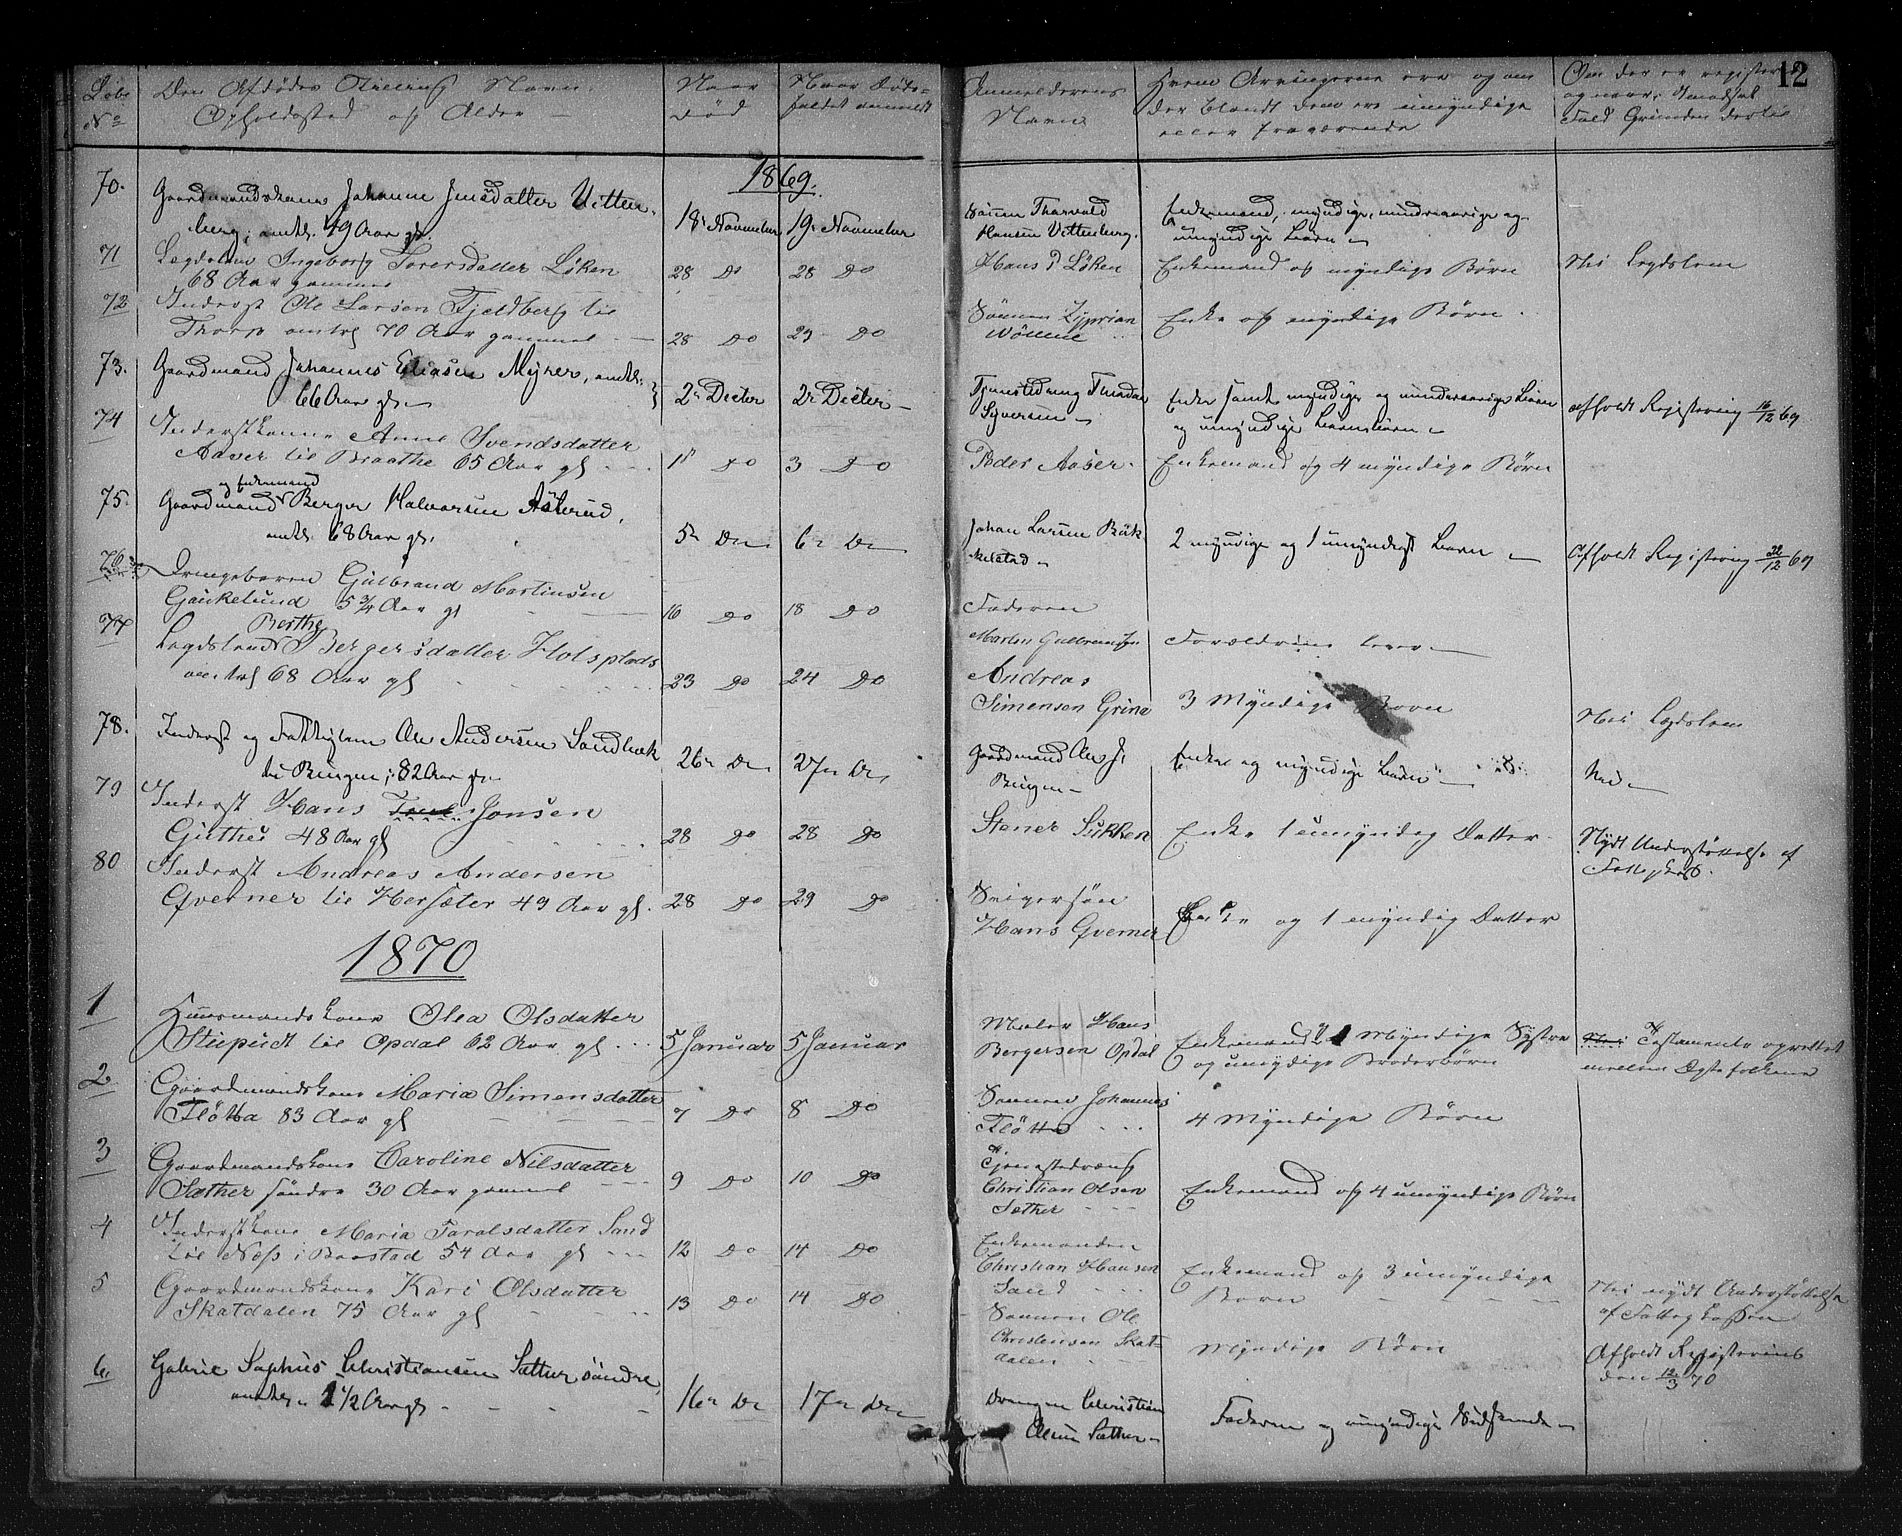 12
Løbe No
Den Afdødes Stilling Navn
Opholdssted og Alder
Naar død
Naar Døds-
faldet anmeldt
Anmelderens
Navn
Hvem Arvingerne ere og om
der blandt dem ere umyndige
eller fraværende
Om der er registre
1869.
70.
Gaardmandskone Johanne Jensdatter Vitten-
berg, omtr. 49 Aar gl.
18. November
19. November
Sønnen Thorvald
Hansen Vittenberg.
Enkemand, myndige, mindreaarige og
umyndige Børn
71
Lægdslem Ingeborg Torersdatter Løken
68 Aar gammel
28 Do
28 Do
Hans P Løken
Enkemand og myndige Børn
Nei Lægdslem
72
Inderst Ole Larsen Fjeldberg lie
Thorp omtr 70 Aar gammel
28 Do
29 Do
Sønnen Zyprian
Enke og myndige Børn
73.
Gaardmand Johannes Eliasen Myrer, omtr.
66 Aar gl.
2. Decbr
2. Decbr
Tjenestedreng
Syversen
Enke samt myndige og mindreaarige Børn
og umyndige Børnebørn
afholdt Registrering 16/12 69
74
Inderstkone Anne Svendsdatter
Aaser lie Braathe 65 Aar gl
1 Do
3 Do
Peder Aaser
Enkemand og 4 myndige Børn
75.
og Enkemand
Gaardmand Berger Halvorsen Åsterud,
omtr. 68 Aar gl.
5 Do
6 Do
Johan Larsen Bøk-
kelstad
2 myndige og 1 umyndigt Barn
Afholdt Registrering 22/12 69
76
Drengebarn Gulbrand Martinsen
Gaukelund 5 3/4 Aar gl
16 Do
18 Do
Faderen
Martin Gulbrandsen
Forældrene lever
77
Berthe
Lægdslem Bergersdatter Holsplads
omtr 68 Aar gl
23 Do
24 Do
Andreas
Simensen Grine
3 Myndige Børn
Nei Lægdslem
78.
Inderst og Fattiglem Ole Andersen Sandbæk
lie Bingen, 82 Aar gl.
26 Do
27 Do
Gaardmand Ole J.
Bingen
Enke og myndige Børn
Nei
79
Inderst Hans Jonsen
Guthus 48 Aar gl
28 Do
28 Do
Stener Sukken
Enke 1 umyndig Datter
Nydt Understøttelse af
Fattigkass.
80
Inderst Andreas Andersen
Qverner lie Hersæter 49 Aar gl.
28 Do
29 Do
Svigersøn
Hans Qverner
Enke og 1 myndig Datter
1870
1
Huusmandskone Olea Olsdatter
lie Opdal 62 Aar gl
5 Januar
5 Januar
Maler Hans
Bergersen Opdal
Enkemand Myndige Søstre
og umyndige Broderbørn
Testamente oprettet
mellem Ægtefolkene
2
Gaardmandskone Maria Simensdatter
Fløtta 83 Aar gl
7 Do
8 Do
Sønnen Johannes
Fløtta
4 Myndige Børn
3
Gaardmandskone Caroline Nilsdatter
Sæther søndre 30 Aar gammel
9 Do
10 Do
Tjenestedreng
Christian Olsen
Sæther
Enkemand og 4 umyndige Børn
4
Inderstkone Maria Taralsdatter Sand
lie Næss i Baastad 54 Aar gl
12 Do
14 Do
Enkemanden
Christian Hansen
Sand
Enkemand og 3 umyndige
Børn
Nei nydt Understøttelse
af Fattigkassen
5
Gaardmandskone Kari Olsdatter
Skatdalen 75 Aar gl
13 Do
14 Do
Sønnen Ole
Christensen Skat-
dalen
Myndige Børn
Afholdt Registrering
den 12/3 70
6.
Sophus Christiansen Sæther søndre,
omtr. 1 1/2 Aar gl.
16 Do
17 Do
Drengen Christian
Olsen Sæther
Faderen og umyndige Sødskende